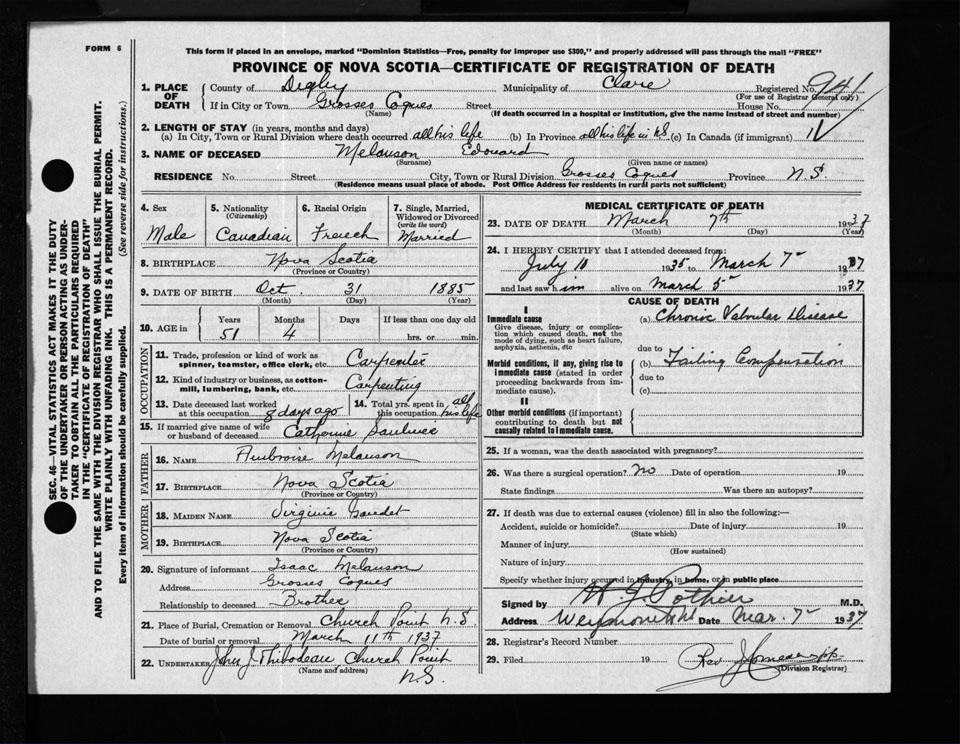 FORM 6
This form if placed in an envelope, marked "Dominion Statistics—Free, penalty for improper use $300," and properly addressed will pass through the mail "FREE"
PROVINCE OF NOVA SCOTIA—CERTIFICATE OF REGISTRATION OF DEATH
1. PLACE OF DEATH
County of Digby Municipality of Clare Registered No. 941
(For use of Registrar General only)
If in City or Town Grosses Coques Street House No.
(Name) (If death occurred in a hospital or institution, give the name instead of street and number)
2. LENGTH OF STAY (in years, months and days)
(a) In City, Town or Rural Division where death occurred all his life (b) In Province all his life in N.S. (c) In Canada (if immigrant)
3. NAME OF DECEASED Melanson Edouard
(Surname) (Given name or names)
RESIDENCE No. Street City, Town or Rural Division Grosses Coques Province N.S.
(Residence means usual place of abode. Post Office Address for residents in rural parts not sufficient)
4. Sex
Male
5. Nationality
(Citizenship)
Canadian
6. Racial Origin
French
7. Single, Married, Widowed or Divorced
(write the word)
Married
8. BIRTHPLACE Nova Scotia
(Province or Country)
9. DATE OF BIRTH Oct. 31 1885
(Month) (Day) (Year)
10. AGE in
Years Months Days If less than one day old
51 4 hrs. or min.
OCCUPATION
11. Trade, profession or kind of work as spinner, teamster, office clerk, etc. Carpenter
12. Kind of industry or business, as cotton-mill, lumbering, bank, etc. Carpenting
13. Date deceased last worked at this occupation 8 days ago
14. Total yrs. spent in this occupation all his life
15. If married give name of wife or husband of deceased Catherine Saulnier
FATHER
16. NAME Ambroise Melanson
17. BIRTHPLACE Nova Scotia
(Province or Country)
MOTHER
18. MAIDEN NAME Virginie Gaudet
19. BIRTHPLACE Nova Scotia
(Province or Country)
20. Signature of informant Isaac Melanson
Address Grosses Coques
Relationship to deceased Brother
21. Place of Burial, Cremation or Removal Church Point N.S.
Date of burial or removal March 11th 1937
22. UNDERTAKER John J. Thibodeau Church Point
(Name and address) N.S.
MEDICAL CERTIFICATE OF DEATH
23. DATE OF DEATH March 7th 1937
(Month) (Day) (Year)
24. I HEREBY CERTIFY that I attended deceased from:
July 10 1935 to March 7 1937
and last saw him alive on March 5 1937
CAUSE OF DEATH
I
Immediate cause
Give disease, injury or complication which caused death, not the mode of dying, such as heart failure, asphyxia, asthenia, etc
(a) Chronic Valvular Disease
due to
Morbid conditions, if any, giving rise to immediate cause (stated in order proceeding backwards from immediate cause).
(b) Failing Compensation
due to
(c)
II
Other morbid conditions (if important) contributing to death but not causally related to immediate cause.
25. If a woman, was the death associated with pregnancy?
26. Was there a surgical operation? No Date of operation 19
State findings Was there an autopsy?
27. If death was due to external causes (violence) fill in also the following:—
Accident, suicide or homicide? Date of injury 19
(State which)
Manner of injury
(How sustained)
Nature of injury
Specify whether injury occurred in industry, in home, or in public place
Signed by Pothier M.D.
Address Weymouth N.S. Date Mar. 7 1937
28. Registrar's Record Number
29. Filed 19 Rev.
(Division Registrar)
SEC. 46—VITAL STATISTICS ACT MAKES IT THE DUTY
OF THE UNDERTAKER OR PERSON ACTING AS UNDER-
TAKER TO OBTAIN ALL THE PARTICULARS REQUIRED
IN THE "CERTIFICATE OF REGISTRATION OF DEATH"
AND TO FILE THE SAME WITH THE DIVISION REGISTRAR WHO SHALL ISSUE THE BURIAL PERMIT.
WRITE PLAINLY WITH UNFADING INK. THIS IS A PERMANENT RECORD.
Every item of information should be carefully supplied. (See reverse side for instructions.)